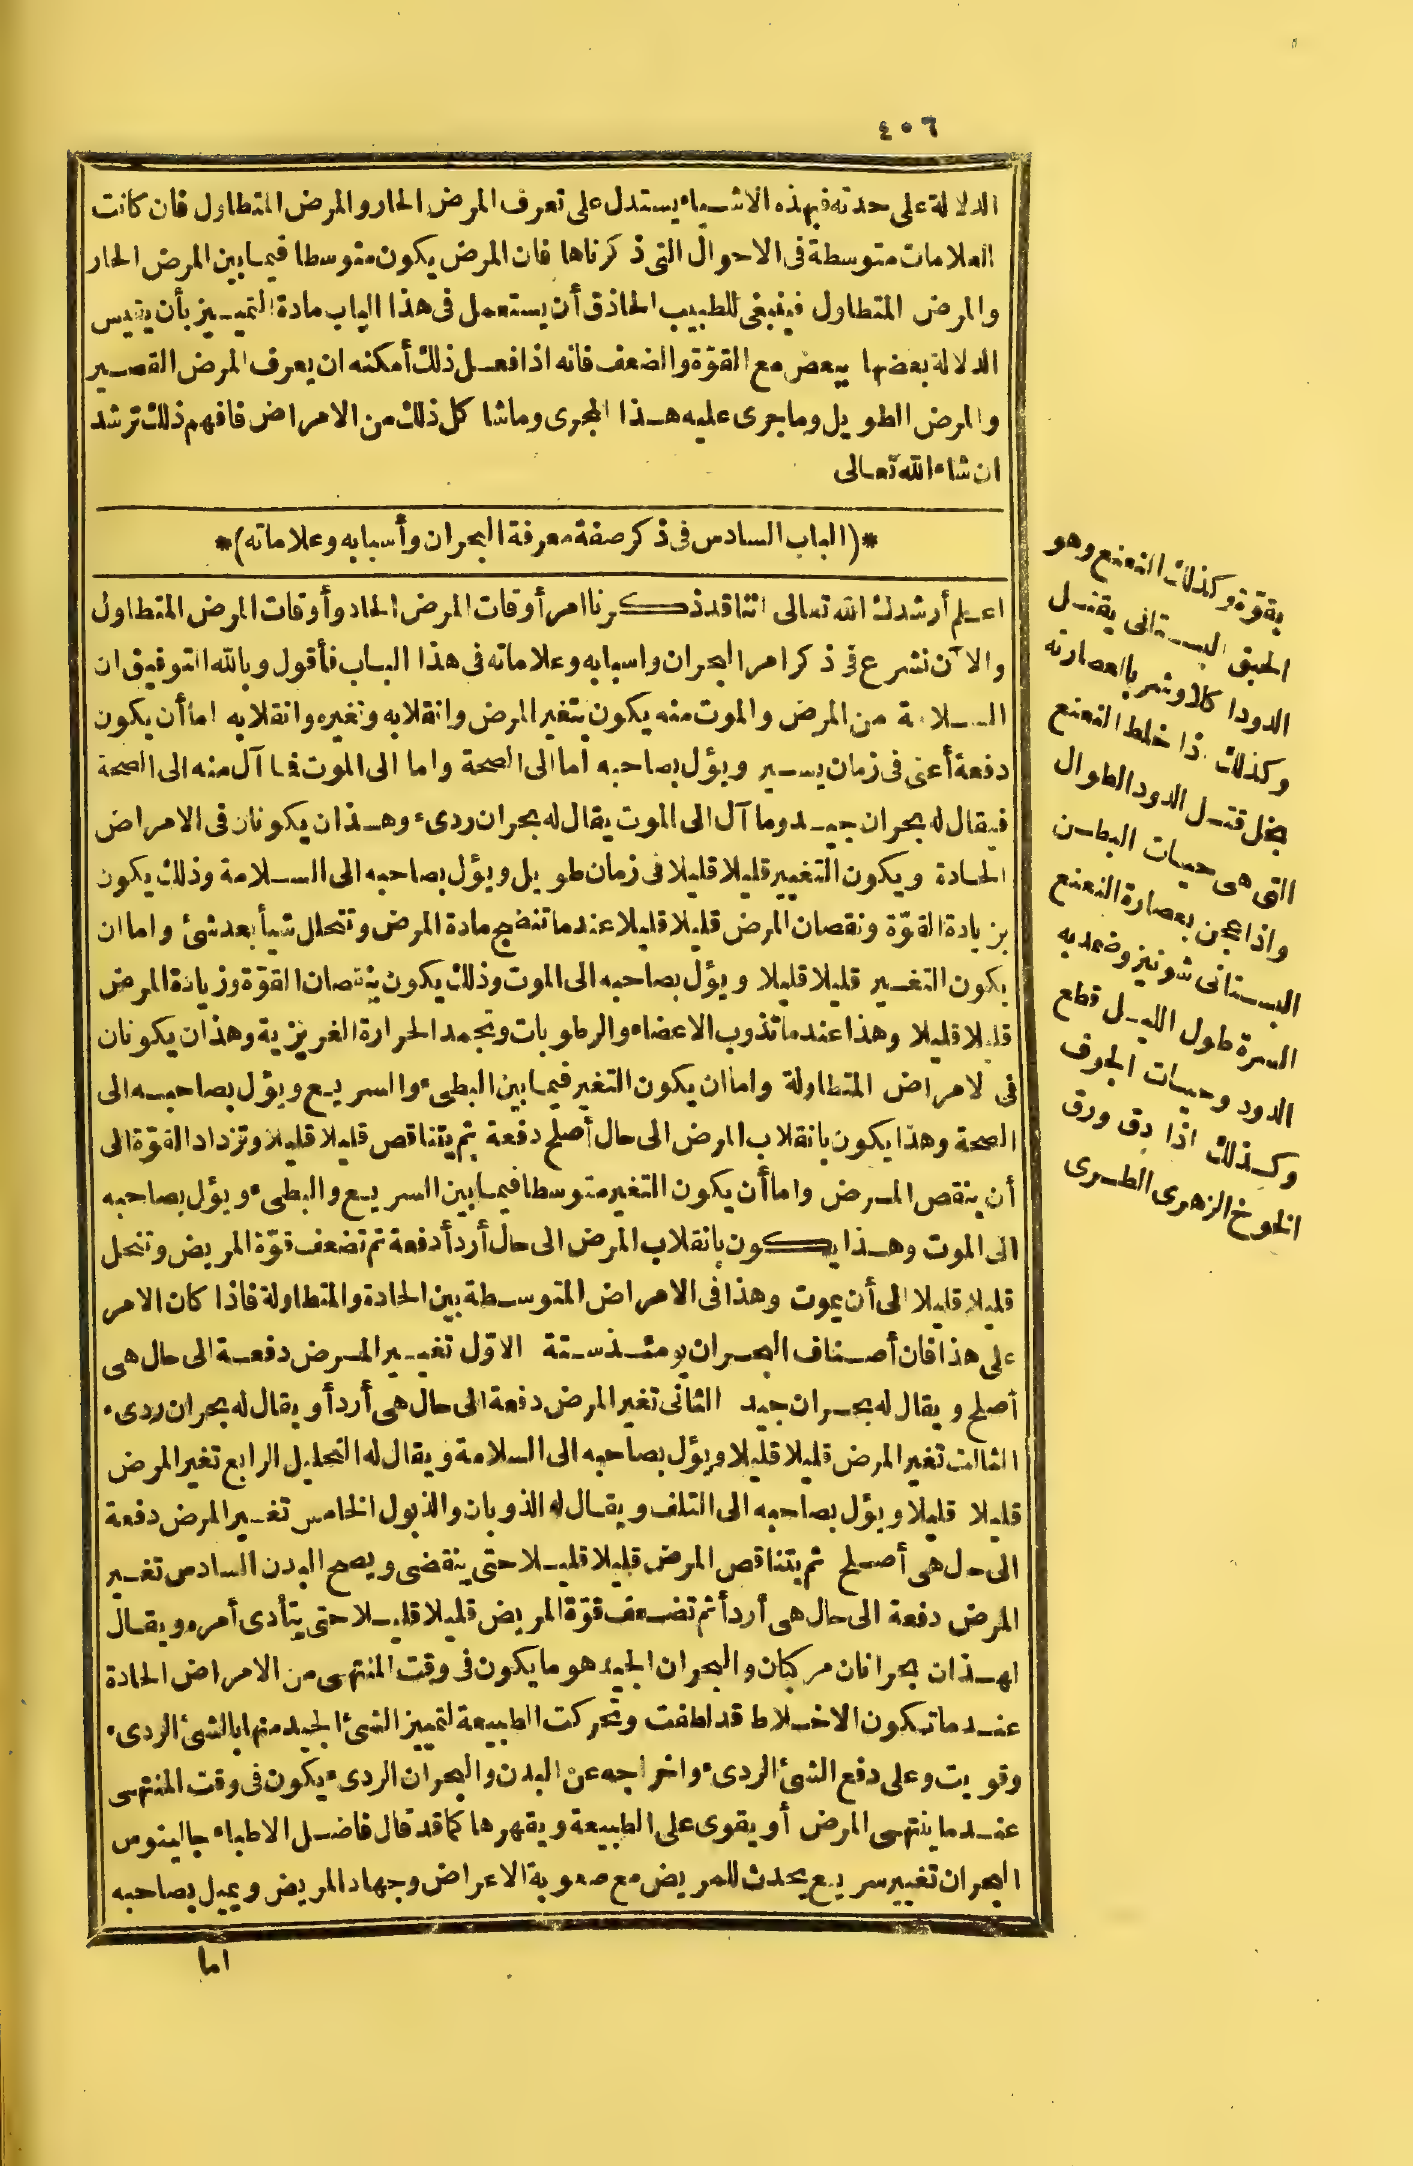 ٤٠٦
الدلالة على حدته فبهذه الاشياء يستدل على تعرف المرض الحار والمرض المتطاول فان كانت
العلامات متوسطة فى الاحوال التى ذكرناها فان المرض يكون متوسطا فيما بين المرض الحار
والمرض المتطاول فينبغى للطبيب الحاذق أن يستعمل فى هذا الباب مادة التمييز بأن يقيس
الدلالة بعضها ببعض مع القوّة والضعف فانه اذا فعل ذلك أمكنه ان يعرف المرض القصير
والمرض الطويل وما جرى عليه هذا المجرى وماشا كل ذلك من الامراض فافهم ذلك ترشد
ان شاء الله تعالى
*(الباب السادس فى ذكر صفة معرفة البحران وأسبابه وعلاماته)*
اعلم أرشدك الله تعالى اننا قد ذكرنا امر أوقات المرض الحاد وأوقات المرض المتطاول
والآن نشرع فى ذكر امر البحران واسبابه وعلاماته فى هذا الباب فأقول وبالله التوفيق ان
السلامة من المرض والموت منه يكون بتغير المرض وانقلابه وتغيره وانقلابه اما أن يكون
دفعة أعنى فى زمان يسير ويؤل بصاحبه اما الى الصحة واما الى الموت فما آل منه الى الصحة
فيقال له بحران جيد وما آل الى الموت يقال له بحران ردىء وهذان يكونان فى الامراض
الحادة ويكون التغيير قليلا قليلا فى زمان طويل ويؤل بصاحبه الى السلامة وذلك يكون
بزيادة القوّة ونقصان المرض قليلا قليلا عندما تنضج مادة المرض وتتحلل شيأ بعد شئ واما ان
يكون التغير قليلا قليلا ويؤل بصاحبه الى الموت وذلك يكون بنقصان القوّة وزيادة المرض
قليلا قليلا وهذا عندما تذوب الاعضاء والرطوبات وتجمد الحرارة الغريزية وهذان يكونان
فى لامراض المتطاولة واما ان يكون التغير فيما بين البطىء والسريع ويؤل بصاحبه الى
الصحة وهذا يكون بانقلاب المرض الى حال أصلح دفعة ثم يتناقص قليلا قليلا وتزداد القوّة الى
أن ينقص المرض واما أن يكون التغير متوسطا فيما بين السريع والبطىء ويؤل بصاحبه
الى الموت وهذا يكون بانقلاب المرض الى حال أردأ دفعة ثم تضعف قوّة المريض وتنحل
قليلا قليلا الى أن يموت وهذا فى الامراض المتوسطة بين الحادة والمتطاولة فاذا كان الامر
على هذا فان أصناف البحران يومئذ ستة الاوّل تغيير المرض دفعة الى حال هى
أصلح ويقال له بحران جيد الثانى تغير المرض دفعة الى حال هى أردأ ويقال له بحران ردىء
الثالث تغير المرض قليلا قليلا ويؤل بصاحبه الى السلامة ويقال له التحليل الرابع تغير المرض
قليلا قليلا ويؤل بصاحبه الى التلف ويقال له الذوبان والذبول الخامس تغير المرض دفعة
الى حال هى أصلح ثم يتناقص المرض قليلا قليلا حتى ينقضى ويصح البدن السادس تغير
المرض دفعة الى حال هى أردأ ثم تضعف قوّة المريض قليلا قليلا حتى يتأدى أمره ويقال
لهذان بحرانان مركبان والبحران الجيد هو ما يكون فى وقت المنتهى من الامراض الحادة
عندما تكون الاخلاط قد لطفت وتحركت الطبيعة لتمييز الشئ الجيد منها بالشئ الردىء
وقويت وعلى دفع الشئ الردىء واخراجه عن البدن والبحران الردىء يكون فى وقت المنتهى
عندما ينتهى المرض أو يقوى على الطبيعة ويقهرها كما قد قال فاضل الاطباء جالينوس
البحران تغيير سريع يحدث للمريض مع صعوبة الاعراض وجهاد المريض ويميل بصاحبه
اما
بقوّة وكذلك النعنع وهو
الحبق البستانى يقتل
الدود اكلا وشربا لعصارته
وكذلك اذا خلط النعنع
بخل قتل الدود الطوال
التى هى حيات البطن
واذا عجن بعصارة النعنع
البستانى شونيز وضمد به
السرة طول الليل قطع
الدود وحيات الجوف
وكذلك اذا دق ورق
الخوخ الزهرى الطرى